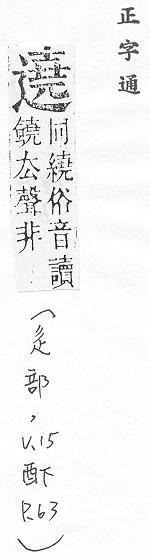 正字通
遶
同繞俗音讀
鐃去聲非
(辵部,V.15
酉下
P.63)